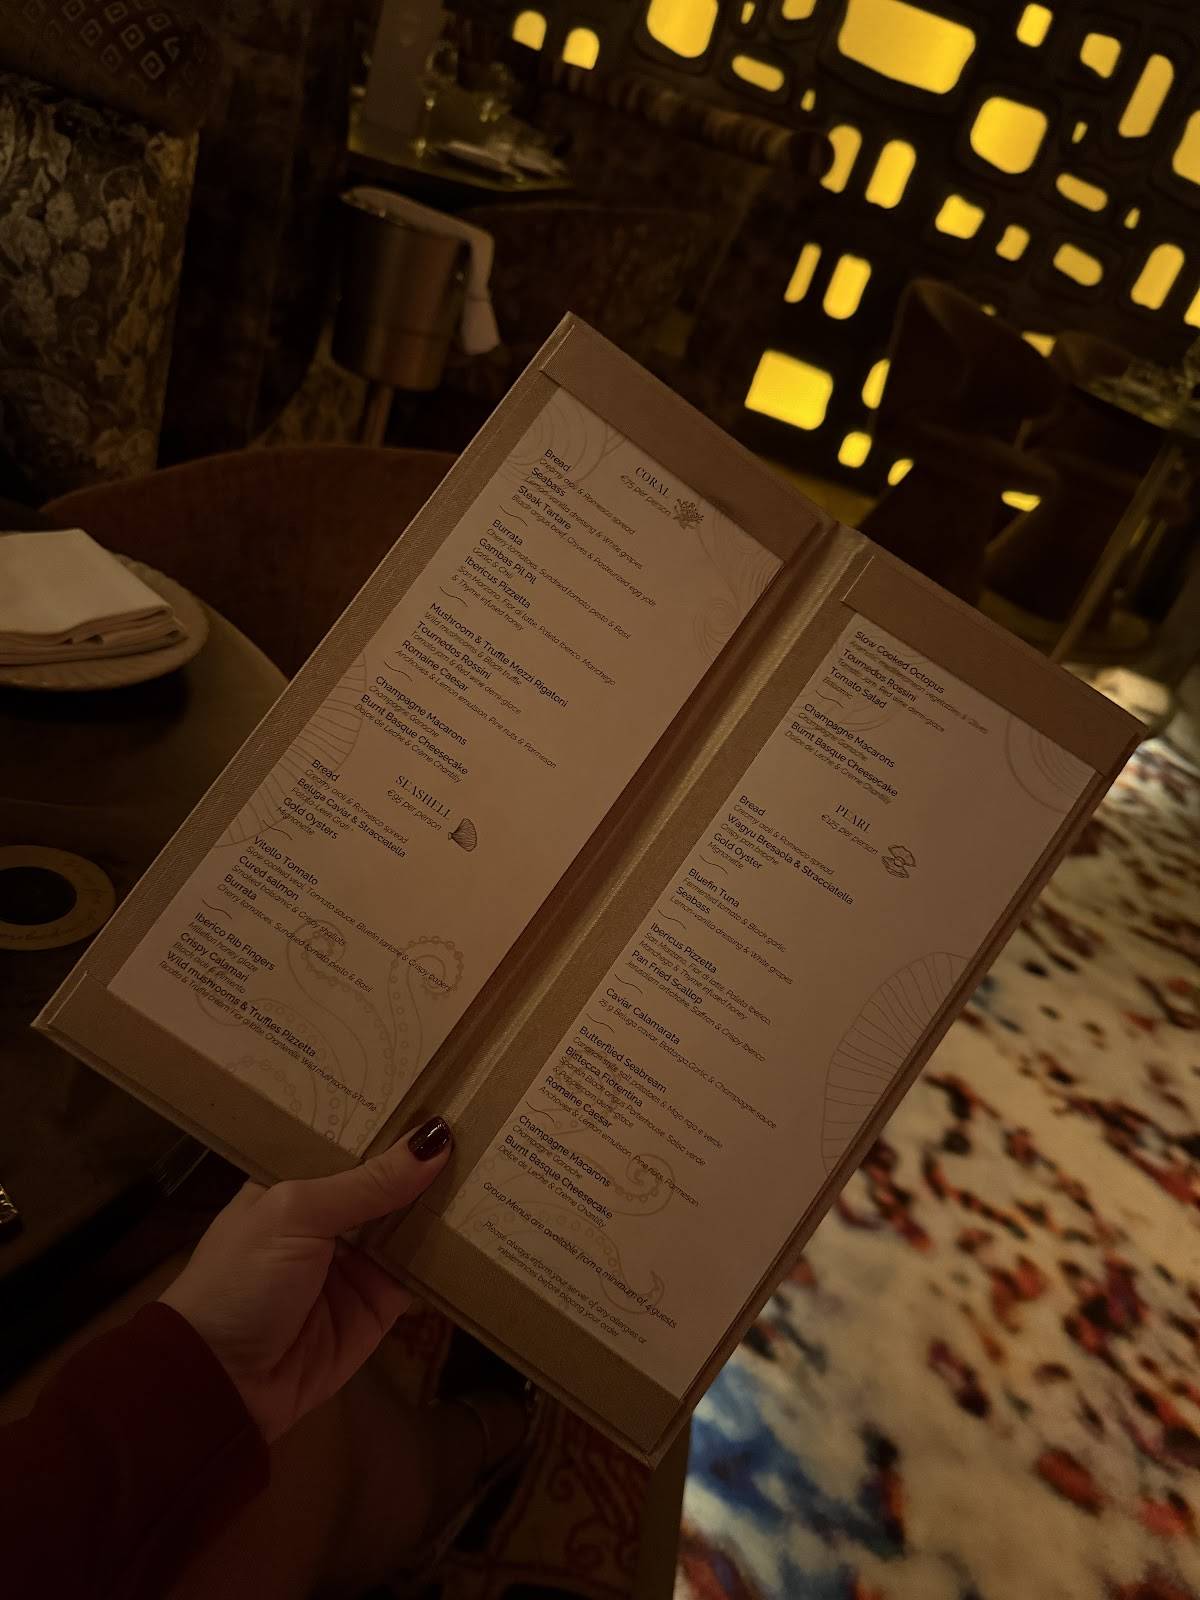 CORAL
€75 per person
Bread
Creamy aioli & Romesco spread
Seabass
Lemon-vanilla dressing & White grapes
Steak Tartare
Black angus beef, Chives & Pasteurized egg yolk
Burrata
Cherry tomatoes, Sundried tomato pesto & Basil
Gambas Pil Pil
Garlic & Chili
Ibericus Pizzetta
San Marzano, Fior di latte, Paleta Iberico, Manchego
& Thyme infused honey
Mushroom & Truffle Mezzi Rigatoni
Wild mushrooms & Black truffle
Tournedos Rossini
Tomato jam & Red wine demi-glace
Romaine Caesar
Anchovies & Lemon emulsion, Pine nuts & Parmesan
Champagne Macarons
Champagne Ganache
Burnt Basque Cheesecake
Dolce de Leche & Crème Chantilly
SEASHELL
€95 per person
Bread
Creamy aioli & Romesco spread
Beluga Caviar & Stracciatella
Potato-Leek
Gold Oysters
Mignonette
Vitello Tonnato
Slow cooked veal, Tonnato sauce, Bluefin tartare & Crispy paper
Cured salmon
Smoked balsamic & Crispy shallots
Burrata
Cherry tomatoes, Sundried tomato pesto & Basil
Iberico Rib Fingers
Millefiori honey glaze
Crispy Calamari
Black aioli & Pimento
Wild mushrooms & Truffles Pizzetta
Taleggio & Truffle cream, Fior di latte, Chanterelle, Wild mushrooms & Truffle
Slow Cooked Octopus
Aromatic Mediterranean vegetables & Olives
Tournedos Rossini
Tomato jam, Red wine demi-glace
Tomato Salad
Balsamic
Champagne Macarons
Champagne Ganache
Burnt Basque Cheesecake
Dolce de Leche & Crème Chantilly
PEARL
€125 per person
Bread
Creamy aioli & Romesco spread
Wagyu Bresaola & Stracciatella
Crispy pan brioche
Gold Oyster
Mignonette
Bluefin Tuna
Fermented tomato & Black garlic
Seabass
Lemon-vanilla dressing & White grapes
Ibericus Pizzetta
San Marzano, Fior di latte, Paleta Iberico,
Manchego & Thyme infused honey
Pan Fried Scallop
Jerusalem artichoke, Saffron & Crispy Iberico
Caviar Calamarata
25 g Beluga caviar, Bottarga, Garlic & Champagne sauce
Butterflied Seabream
salt potatoes & Mojo rojo e verde
Bistecca Fiorentina
Spanish Black angus Porterhouse, Salsa verde
& Peppercorn demi-glace
Romaine Caesar
Anchovies & Lemon emulsion, Pine nuts, Parmesan
Champagne Macarons
Champagne Ganache
Burnt Basque Cheesecake
Dolce de Leche & Crème Chantilly
Group Menus are available from a minimum of 4 guests
Please always inform your server of any allergies or
intolerances before placing your order